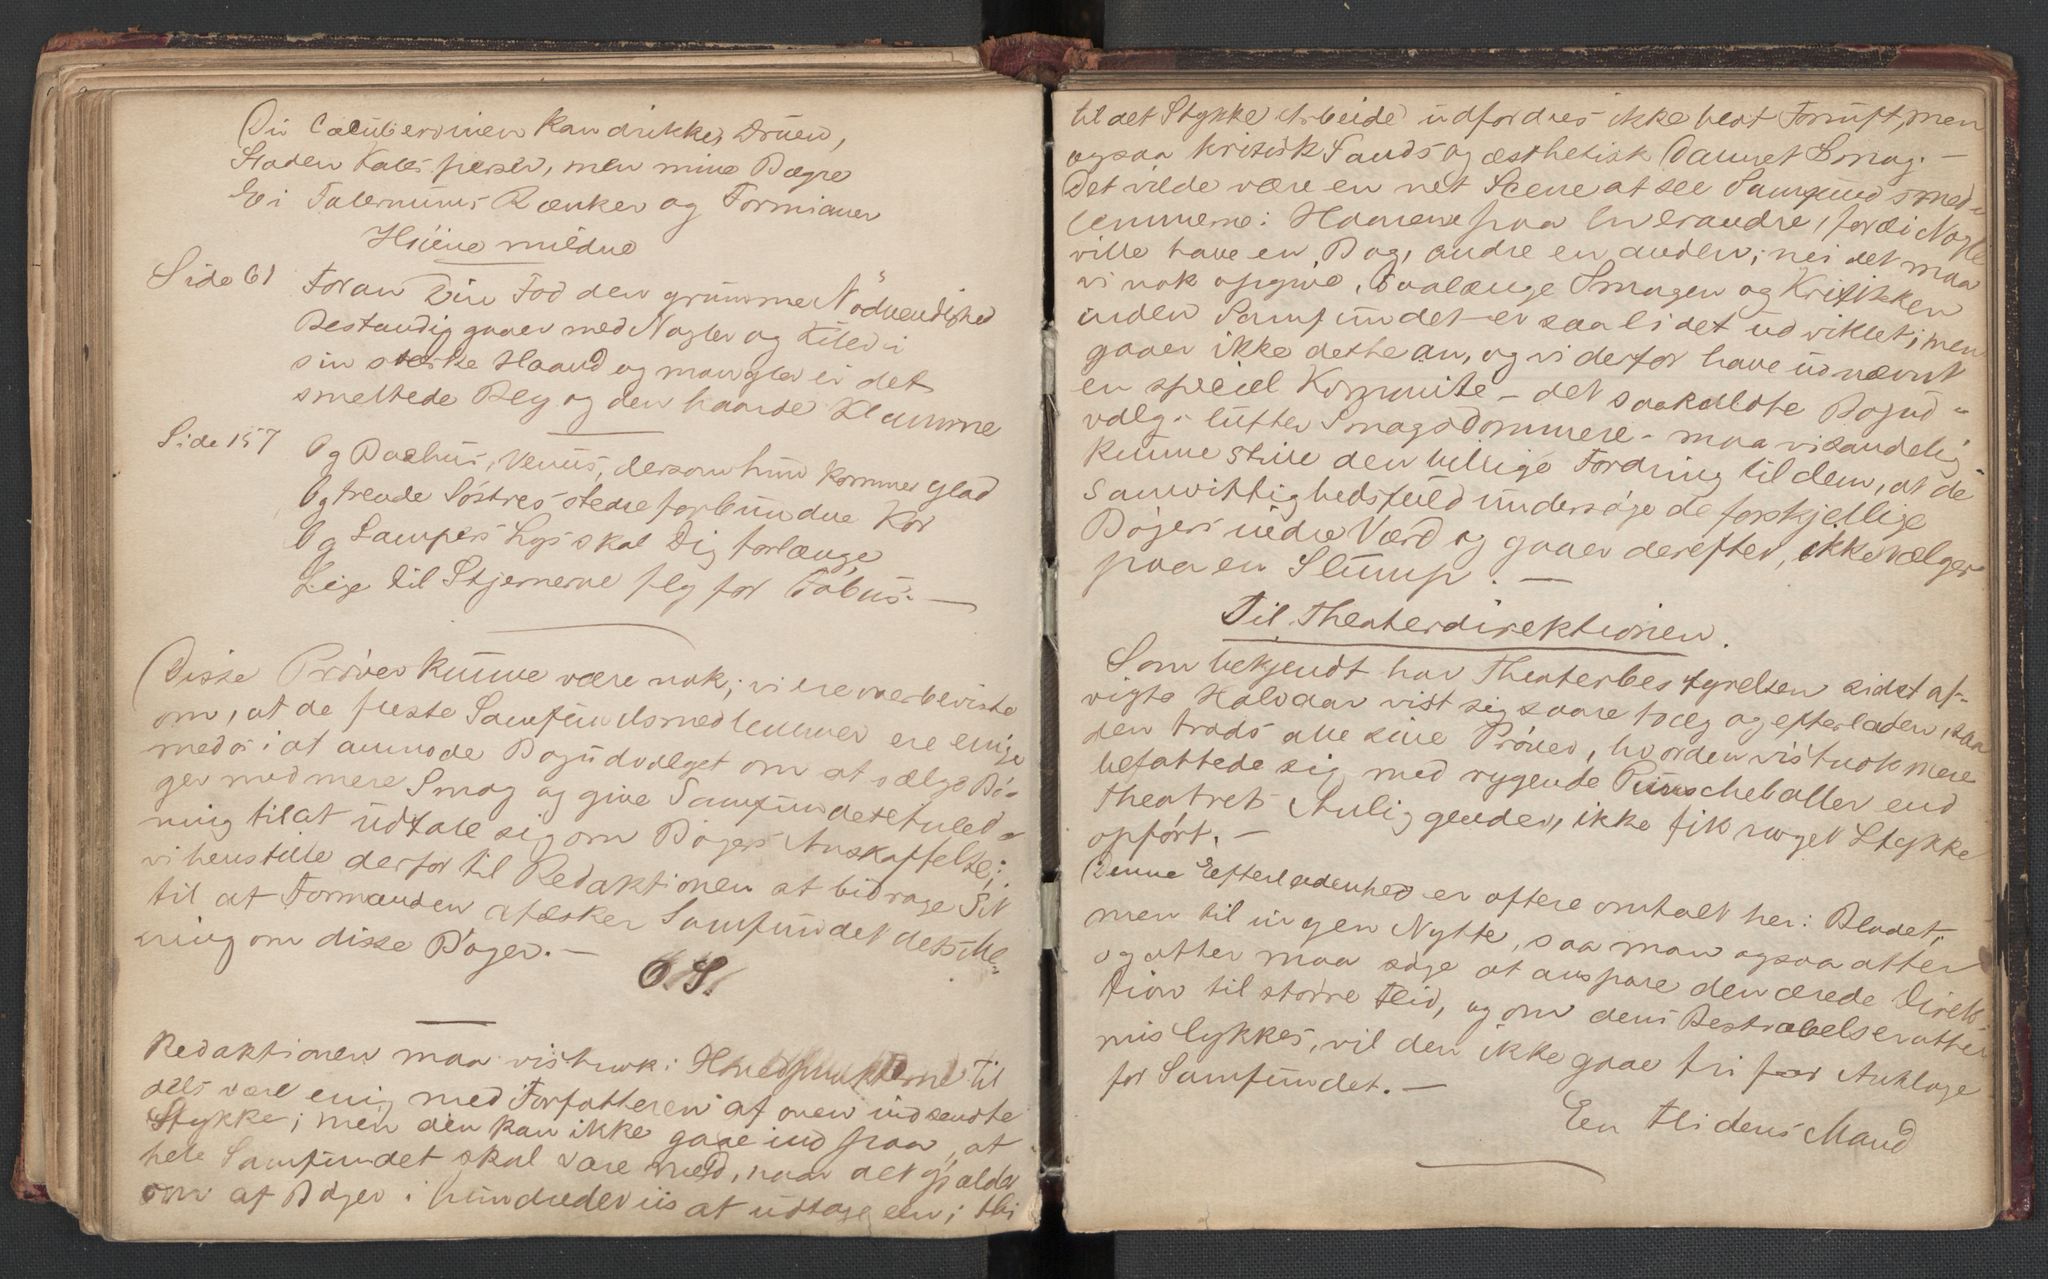 Du Cæcubervinen kan drikke, Druen,
Staden Kales perser, men mine Bægre
Ei Falernums Ranker og Formianer
Høiene mildne
Side 61 Foran Din Fod den grumme Nødvendighed
Bestandig gaaer med Nagler og Kiler i
sin stærke Haand og mangler ei det
smeltede Bly og den haarde Klamme
Side 157 Og Bachus, Venus, dersom hun kommer glad
Og trende Søstres stedse forbundne Kor
Og Lampers Lys skal Dig forlænge,
Lige til Stjernerne fly for Føbus. —
Disse Prøver kunne være nok; vi ere overbeviste
om, at de fleste Samfundsmedlemmer ere enige
med os i at anmode Bogudvalget om at vælge Bø-
ger med mere Smag og give Samfundet Anled-
ning til at udtale sig om Bøgers Anskaffelse;
vi henstille derfor til Redaktionen at bidrage Sit
til at Formanden æsker Samfundet dets Me-
ning om disse Bøger. —
6. S.
Redaktionen maa vistnok i Hovedpunkterne til
dels være enig med Forfatteren af oven indsendte
Stykke; men den kan ikke gaae ind paa, at
hele Samfundet skal være med, naar det gjælder
om af Bøger i hundredeviis at udtage een; thi
til det Stykke Arbeide udfordres ikke blot Fornuft, men
ogsaa kritisk Sands og æsthetisk dannet Smag. —
Det vilde være en net Scene at see Samfundsmed-
lemmerne i Haarene paa hverandre, fordi Nogle
ville have en Bog, andre en anden; nei det maa
vi nok opgive, saalænge Smagen og Kritikken
inden Samfundet er saa lidet udviklet; men
gaaer ikke dette an, og vi derfor have udnævnt
en speciel Kommite – det saakaldte Bogud-
valg – lutter Smagsdommere – maa vi sandelig
kunne stille den billige Fordring til dem, at de
samvittighedsfuld undersøge de forskjellige
Bøgers indre Værd og gaaer derefter, ikke vælger
paa en Slump. —
Til Theaterdirektionen.
Som bekjendt har Theaterbestyrelsen sidst af-
vigte Halvaar vist sig saare træg og efterladen, saa
den trods alle sine Prøver, hvor den vistnok mere
befattede sig med rygende Punscheboller end
Theatrets Anliggender, ikke fik noget Stykke
opført. —
Denne Efterladenhed er oftere omtalt her i Bladet,
men til ingen Nytte, saa man ogsaa atter
og atter maa søge at anspore den ærede Direk-
tion til større Flid, og om dens Bestræbelser atter
mislykkes, vil den ikke gaae fri for Anklage
for Samfundet. —
Een Flidens Mand